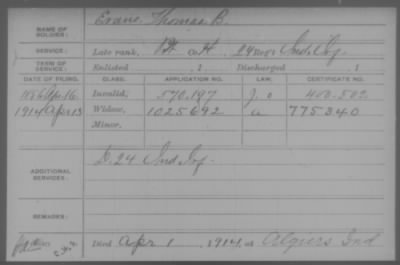 NAME OF SOLDIER: Evans, Thomas B.
SERVICE: Late rank, Pt. Co. H, 24 Ind. Inf.
TERM OF SERVICE: Enlisted , 1 Discharged , 1
DATE OF FILING. CLASS. APPLICATION NO. LAW. CERTIFICATE NO.
1886 Apr. 16 Invalid, 570.197 400.502
1914 Apr 13 Widow, 1025692 a 775340
Minor,
ADDITIONAL SERVICES: D. 24 Ind Inf.
REMARKS:
Died Apr 1, 1914, at Algiers Ind